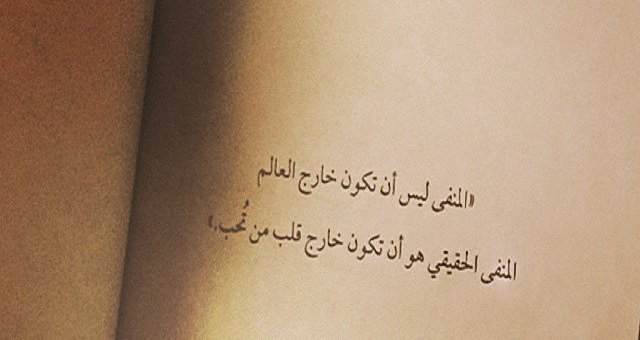 «المنفى ليس أن تكون خارج العالم
المنفى الحقيقي هو أن تكون خارج قلب من تُحب.»